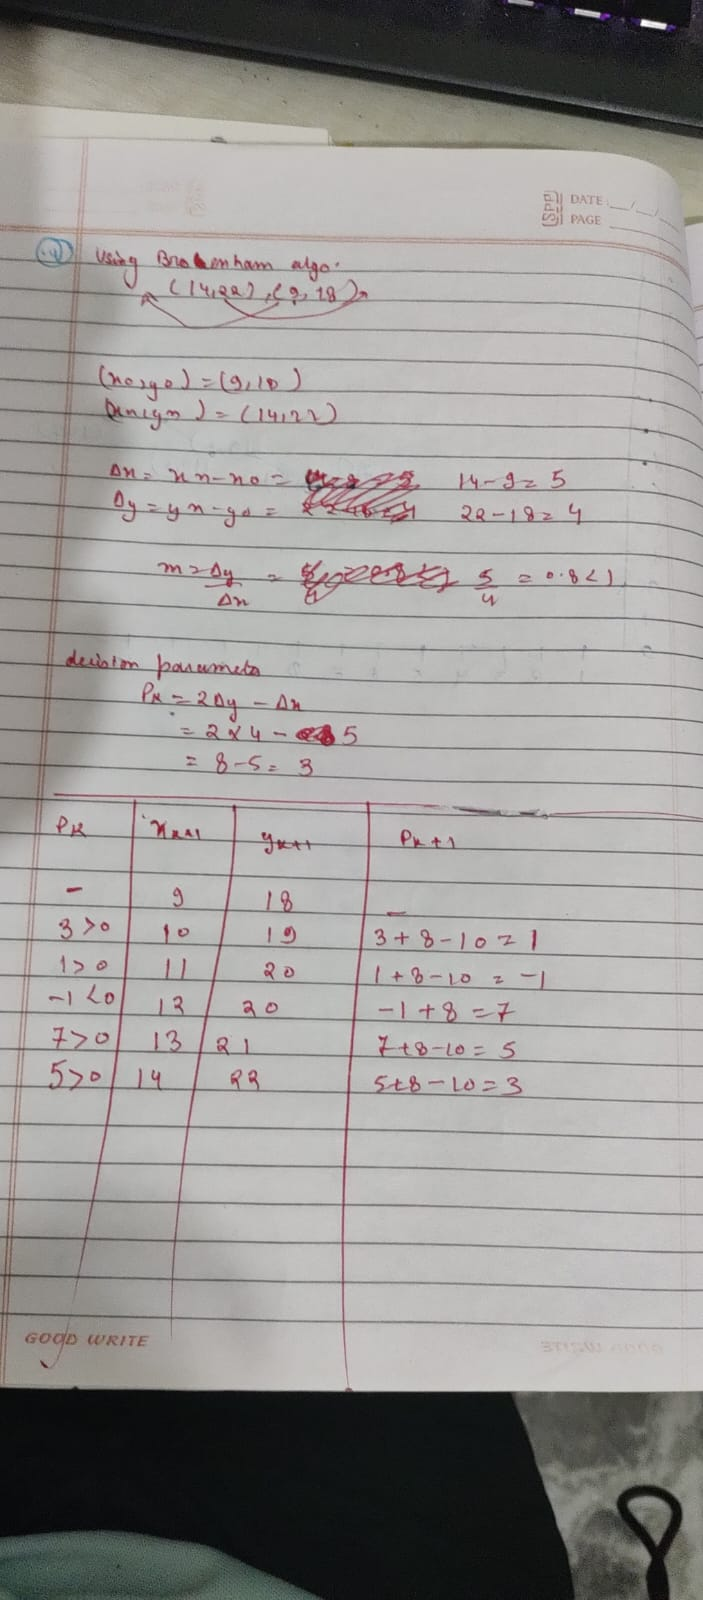 DATE
PAGE
Using Brosenham algo.
(14,22), (9,18)
(x0,y0) = (9,18)
(xn,yn) = (14,22)
Δx = xn-x0 = 14-9 = 5
Δy = yn-y0 = 22-18 = 4
m = Δy/Δx = 5/4 = 0.8 < 1
decision parameto
Pk = 2Δy - Δx
= 2x4 - 5
= 8-5 = 3
Pk xk+1 yk+1 Pk+1
- 9 18 -
3>0 10 19 3+8-10 = 1
1>0 11 20 1+8-10 = -1
-1<0 12 20 -1+8 = 7
7>0 13 21 7+8-10 = 5
5>0 14 22 5+8-10 = 3
GOOD WRITE